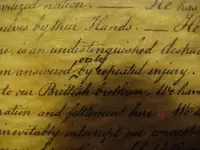 vilized nation. — He has
selves by their Hands. — He
re, is an undistinguished destruc
only
en answered by repeated injury.
to our Brittish brethren. We have
ration and settlement here. We
inevitably interrupt our connectio